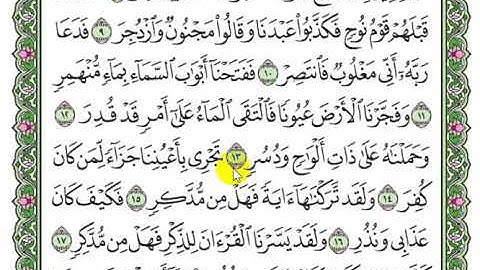 قَبْلَهُمْ قَوْمُ نُوحٍ فَكَذَّبُوا۟ عَبْدَنَا وَقَالُوا۟ مَجْنُونٌ وَٱزْدُجِرَ ٩ فَدَعَا
رَبَّهُۥٓ أَنِّى مَغْلُوبٌ فَٱنتَصِرْ ١٠ فَفَتَحْنَآ أَبْوَٰبَ ٱلسَّمَآءِ بِمَآءٍ مُّنْهَمِرٍ
١١ وَفَجَّرْنَا ٱلْأَرْضَ عُيُونًا فَٱلْتَقَى ٱلْمَآءُ عَلَىٰٓ أَمْرٍ قَدْ قُدِرَ ١٢
وَحَمَلْنَٰهُ عَلَىٰ ذَاتِ أَلْوَٰحٍ وَدُسُرٍ ١٣ تَجْرِى بِأَعْيُنِنَا جَزَآءً لِّمَن كَانَ
كُفِرَ ١٤ وَلَقَد تَّرَكْنَٰهَآ ءَايَةً فَهَلْ مِن مُّدَّكِرٍ ١٥ فَكَيْفَ كَانَ
عَذَابِى وَنُذُرِ ١٦ وَلَقَدْ يَسَّرْنَا ٱلْقُرْءَانَ لِلذِّكْرِ فَهَلْ مِن مُّدَّكِرٍ ١٧